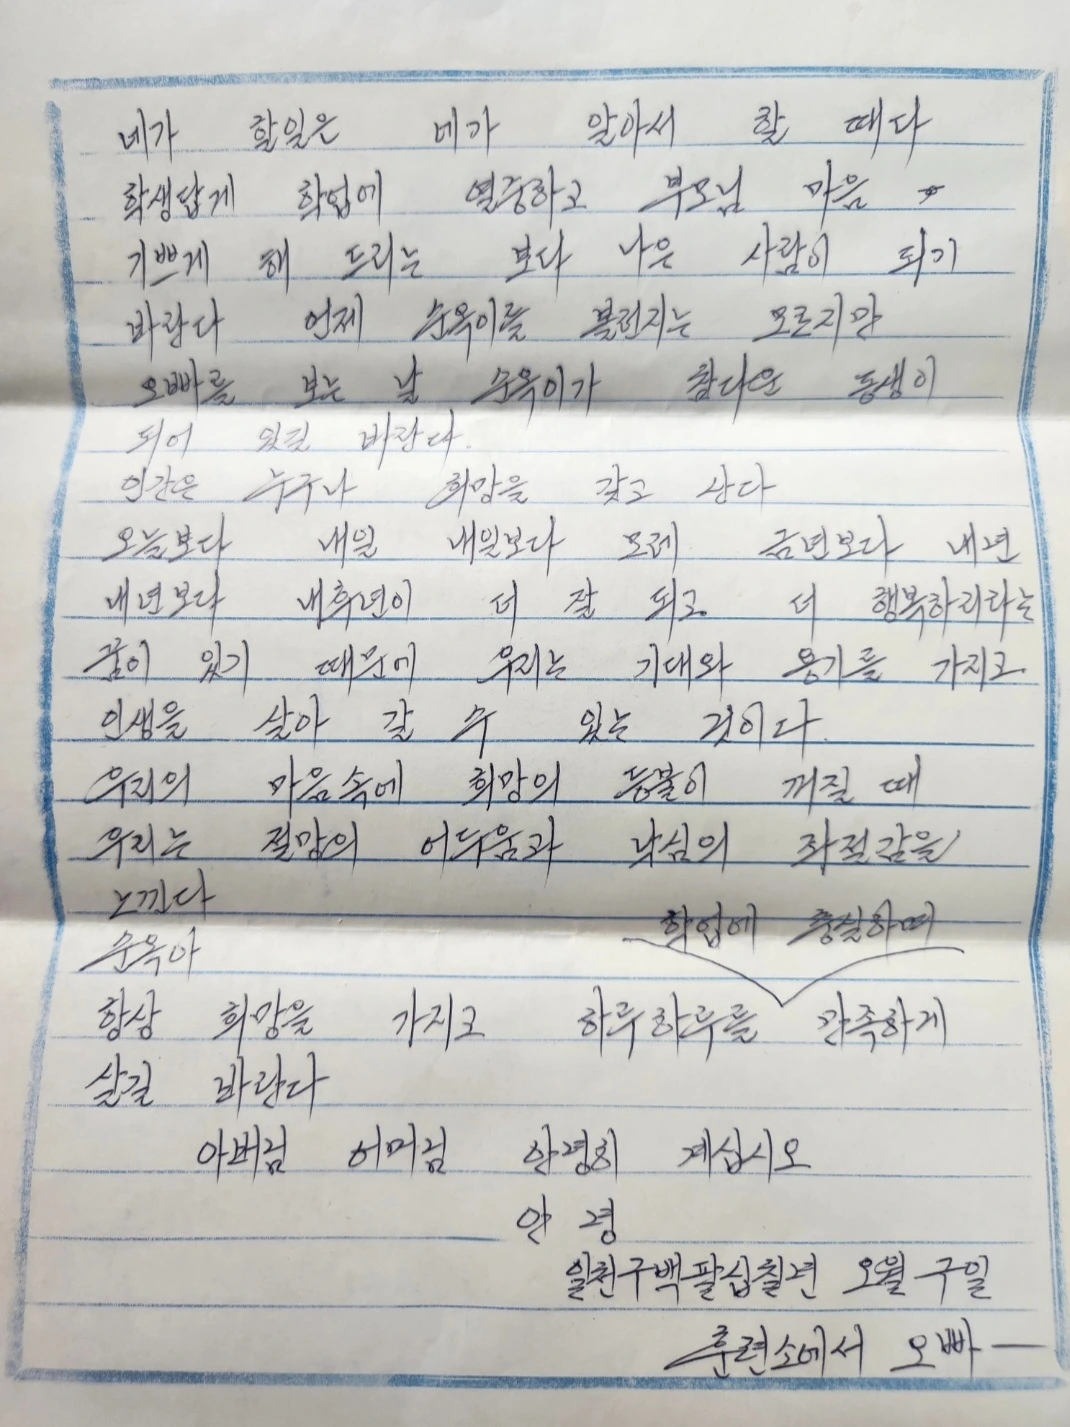 네가 할일은 네가 알아서 할 때다
학생답게 학업에 열중하고 부모님 마음
기쁘게 해 드리는 보다 나은 사람이 되기
바란다 언제 순옥이를 볼런지는 모르지만
오빠를 보는 날 순옥이가 참다운 동생이
되어 있길 바란다.
인간은 누구나 희망을 갖고 산다
오늘보다 내일 내일보다 모레 금년보다 내년
내년보다 내후년이 더 잘 되고 더 행복하리라는
꿈이 있기 때문에 우리는 기대와 용기를 가지고
인생을 살아 갈 수 있는 것이다.
우리의 마음속에 희망의 등불이 꺼질 때
우리는 절망의 어두움과 낙심의 좌절감을
느낀다
학업에 충실하며
순옥아
항상 희망을 가지고 하루하루를 만족하게
살길 바란다
아버님 어머님 안녕히 계십시오
안 녕
일천구백팔십칠년 오월 구일
훈련소에서 오빠 —